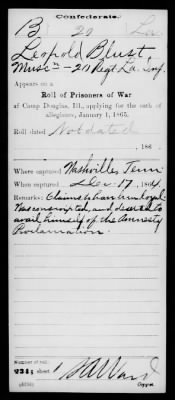 Confederate.
B 20 La.
Leopold Blust
Musc - 20 Regt La. Inf.
Appears on a
Roll of Prisoners of War
at Camp Douglas, Ill., applying for the oath of
allegiance, January 1, 1865.
Roll dated
Not dated
, 186
Where captured Nashville Tenn
When captured Dec 17, 1864.
Remarks: Claims to have been loyal,
was conscripted, and deserted to
avail himself of the Amnesty
Proclamation.
Number of roll:
231; sheet 1
Copyist.